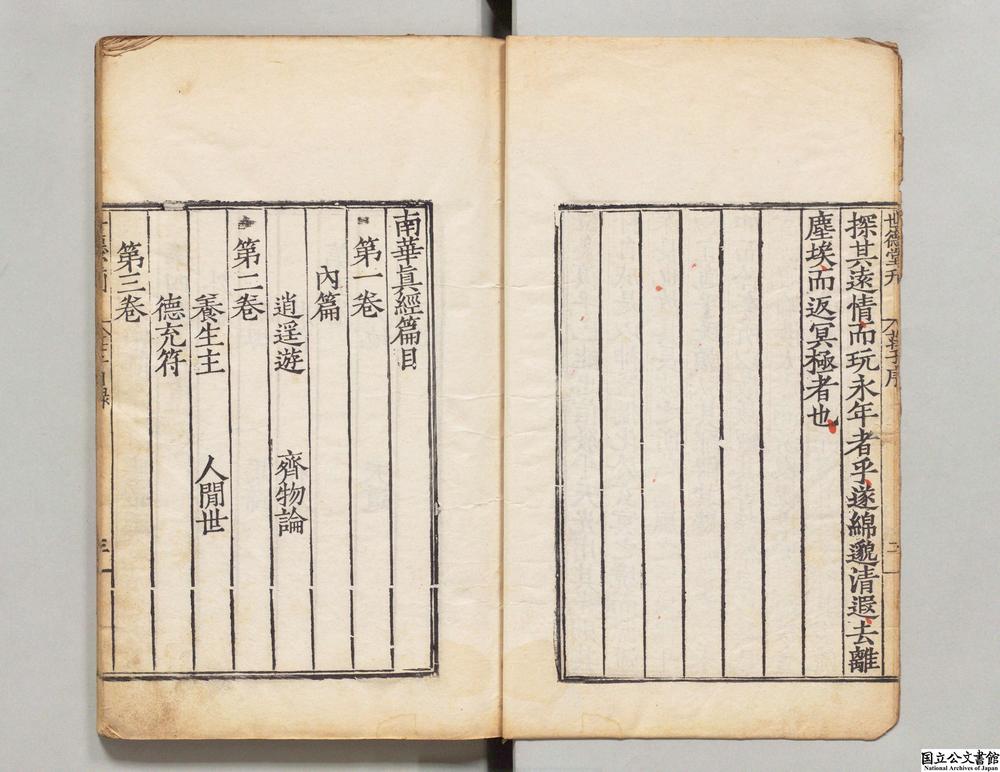 世德堂刊
莊子序
三
探其遠情而玩永年者乎遂綿邈清遐去離
塵埃而返冥極者也
南華真經篇目
第一卷
內篇
逍遥遊 齊物論
第二卷
養生主 人閒世
德充符
第三卷
国立公文書館
National Archives of Japan